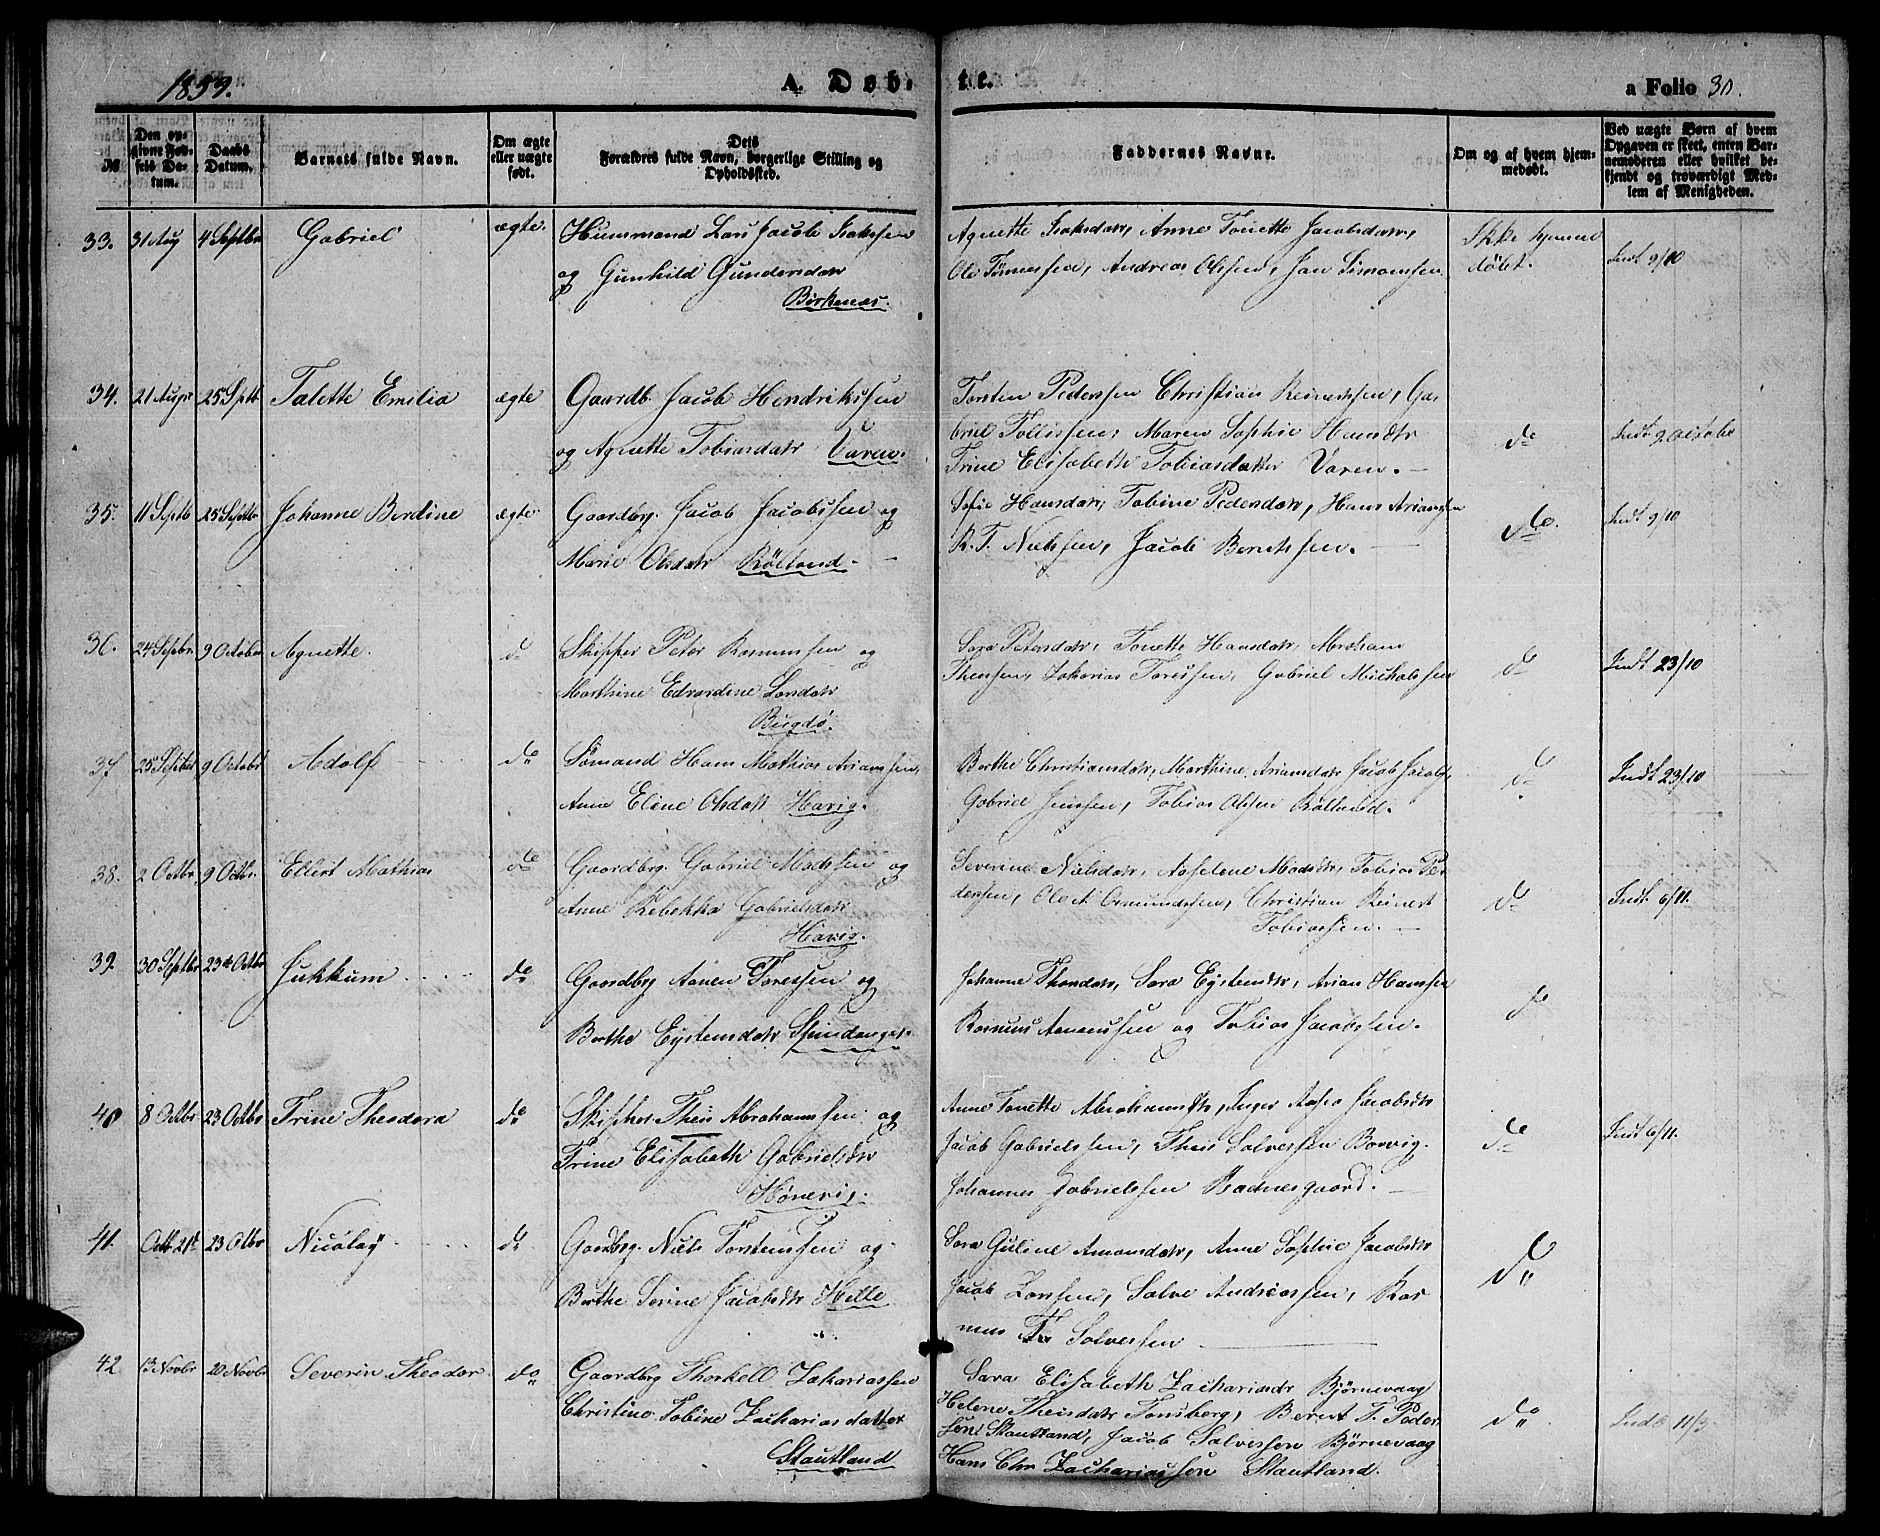 1859.
A. Døb-
te.
a Folio 30.
№
Den op-
givne Fød-
sels Da-
tum.
Daabs
Datum.
Barnets fulde Navn.
Om ægte
eller uægte
født.
Dets
Forældres fulde Navn, borgerlige Stilling og
Opholdssted.
Faddernes Navne.
Om og af hvem hjem-
medøbt.
Ved uægte Børn af hvem
Opgaven er skeet, enten Bar-
nemoderen eller hvilket be-
kjendt og troværdigt Med-
lem af Menigheden.
33. 31 Aug 4 Septbr Gabriel ægte. Huusmand Lars Jacob Isaksen
og Gunhild Gundersdatr
Birkenæs.
Agnette Isaksdatr, Anne Tonette Jacobsdatr,
Ole Tønnessen, Andreas Olssen, Jan Simonssen
Ikke hjemme
døbt.
Indt 9/10
34. 21 Augs 25 Septb Talette Emilia ægte Gaardb. Jacob Hendrikssen
og Agnette Tobiasdatr Varen.
Torsten Pederssen Christian Reinertssen, Ga-
briel Tollissen, Maren Sophie Hansdtr
Trine Elisabeth Tobiasdatter Varen.
do
Indt 9 Octobr
35. 11 Septb 25 Septbr Johanne Berdine ægte Gaardbrg. Jacob Jacobssen og
Marie Olsdatr Rølland
Sofie Hansdatr, Tobine Pedersdatr, Hans Arianssen
R. T. Nielssen, Jacob Berntssen.
do.
Indt 9/10
36. 24 Sepbr. 9 October Agnette. do Skipper Peter Rasmussen og
Marthine Edvardine Larsdatr
Bugdø.
Sara Petersdatr, Tonette Hansdatr, Abraham
Theissen, Zakarias Taressen, Gabriel Michalssen
do
Indt 23/10
37 25 Septbr 9 Octobr Adolf do Sømand Hans Mathias Arianssen,
Anne Eline Olsdatr Havig.
Berthe Christiansdatr, Marthine Ariansdatr Jacob Jacobs,
Gabriel Jenssen, Tobias Olssen Rølland.
do
Indt 23/10
38. 2 Octbr. 9 Octbr. Ellert Mathias do Gaardbrg. Gabriel Madssen og
Anne Rebekka Gabrielsdatr
Havig.
Severine Nielsdatr, Aaselene Madsdtr, Tobias Pe-
derssen, Ole A. Osmundssen, Christian Reinert
Tobiassen.
do
Indt. 6/11.
39. 30 Septbr 23de Octbr Jukkum do Gaardbrg Aanen Taressen og
Berthe Eystensdatr Spindanger.
Johanne Thorsdatr, Sara Eystensdtr, Arian Hanssen
Rasmus Aanenssen og Tobias Jacobssen.
do
40 8 Octbr 23 Octbr Trine Theodora do Skipher Theis Abrahamssen og
Trine Elisabeth Gabrielsdtr
Hønevig.
Anne Tonette Abrahamsdtr, Inger Aasa Jacobsdtr
Jacob Gabrielssen, Theis Salvessen Borvig.
Johannes Gabrielssen Rachnesgaard.
do
Indt 6/11.
41. Octb. 21t 23 Octbr Nicolay do Gaardbrg. Niels Torstenssen og
Berthe Serine Jacobsdtr Helle
Sara Guline Amansdatr, Anne Sophie Jacobsdtr
Jacob Larssen, Salve Andreassen, Ras
mus Tr Salvessen
do
42 13 Novbr 20 Novbr Severin Theodor do Gaardbrg Thorkell Zakariassen
Christine Tobine Zachariasdatter
Skautland
Sara Elisabeth Zachariasdtr Bjørnevaag
Helene Theisdatr Tonsberg, Berent T. Peder-
sen Skautland, Jacob Salvessen Bjørnevaag
Hans Chr. Zachariassen Skautland.
do
Indt 11/3